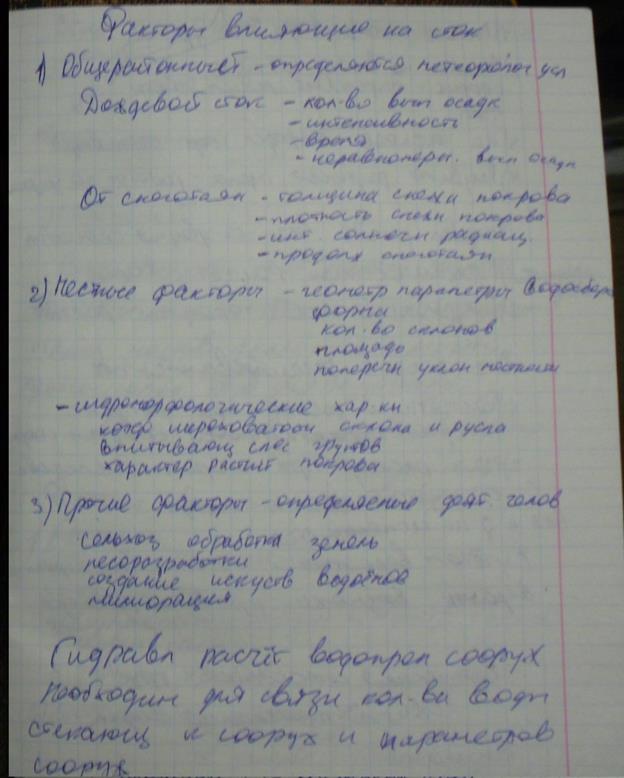 Факторы влияющие на сток
1) Общерайонные - определяются метеоролог усл
Дождевой сток - кол-во вып осадк
- интенсивность
- время
- неравномерн. вып осадк
От снеготаян - толщина снежн покрова
- плотность снежн покрова
- инт солнечн радиац.
- продолж снеготаян
2) Местные факторы - геометр параметры водосбора
форма
кол-во склонов
площадь
поперечн уклон местности
- гидроморфологические хар-ки
коэф шероховатости склона и русла
впитывающ спос грунтов
характер растит покрова
3) Прочие факторы - определяемые деят. челов
сельхоз обработка земель
лесоразработки
создание искуств водоёмов
милиорация
Гидравл расчёт водопроп сооруж
необходим для связи кол-ва воды
стекающ к сооруж и параметров
сооруж